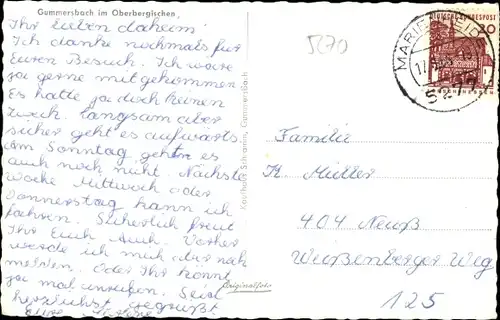 Gummersbach im Oberbergischen
Ihr Lieben daheim!
Ich danke nochmals für
Euren Besuch. Ich wäre
ja gerne mitgekommen.
Es hatte ja doch keinen
Zweck. Langsam aber
sicher geht es aufwärts.
Am Sonntag geht es
auch noch nicht. Nächste
Woche Mittwoch oder
Donnerstag kann ich
fahren. Sicherlich freut
Ihr Euch auch. Vorher
werde ich mich aber noch
melden. Oder Ihr könnt
ja mal anrufen. Seid
herzlichst gegrüßt
Eure
Kaufhaus Schramm, Gummersbach
Originalfoto
5270
DEUTSCHE BUNDESPOST
Familie
K. Müller
404 Neuß
Weißenberger Weg
125